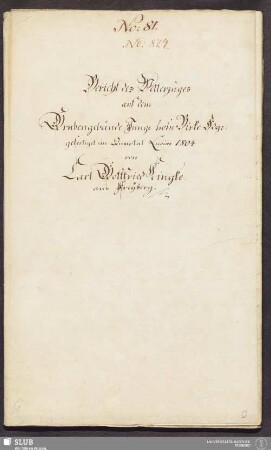 No: 81.
No: 829.
Bericht des Wetterzuges
auf dem
Grubengebäude Junge hohe Birke Fdgr.
gefertigt im Quartal Luciae 1804
von
Carl Gottfried
aus Freyberg.
SLUB